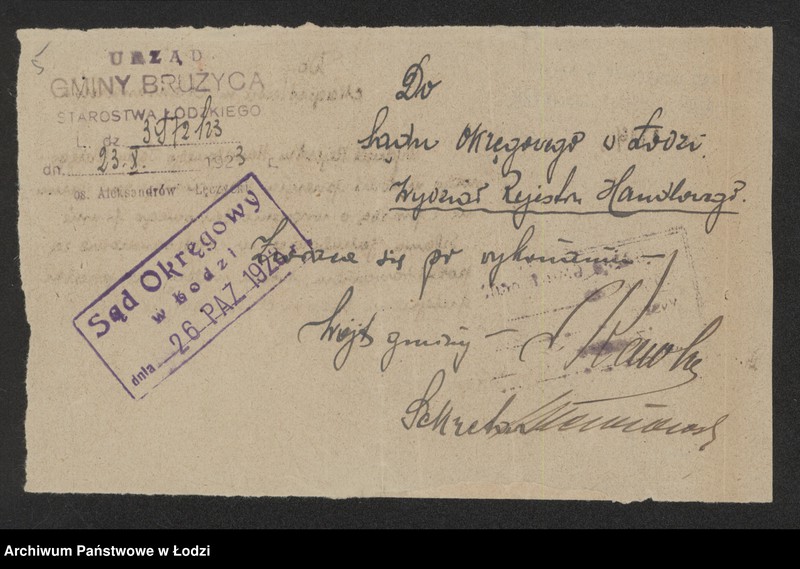 URZĄD
GMINY BRUŻYCA
STAROSTWA ŁÓDZKIEGO
L. dz. 3972/23
dn. 23. X. 1923 r.
os. Aleksandrów Łęczycki
Do
Sądu Okręgowego w Łodzi
Wydział Rejestru Handlowego.
Zwraca się po wykonaniu
Sąd Okręgowy
w Łodzi
dnia 26 PAŹ. 1923
Wójt gminy
Sekretarz
Archiwum Państwowe w Łodzi